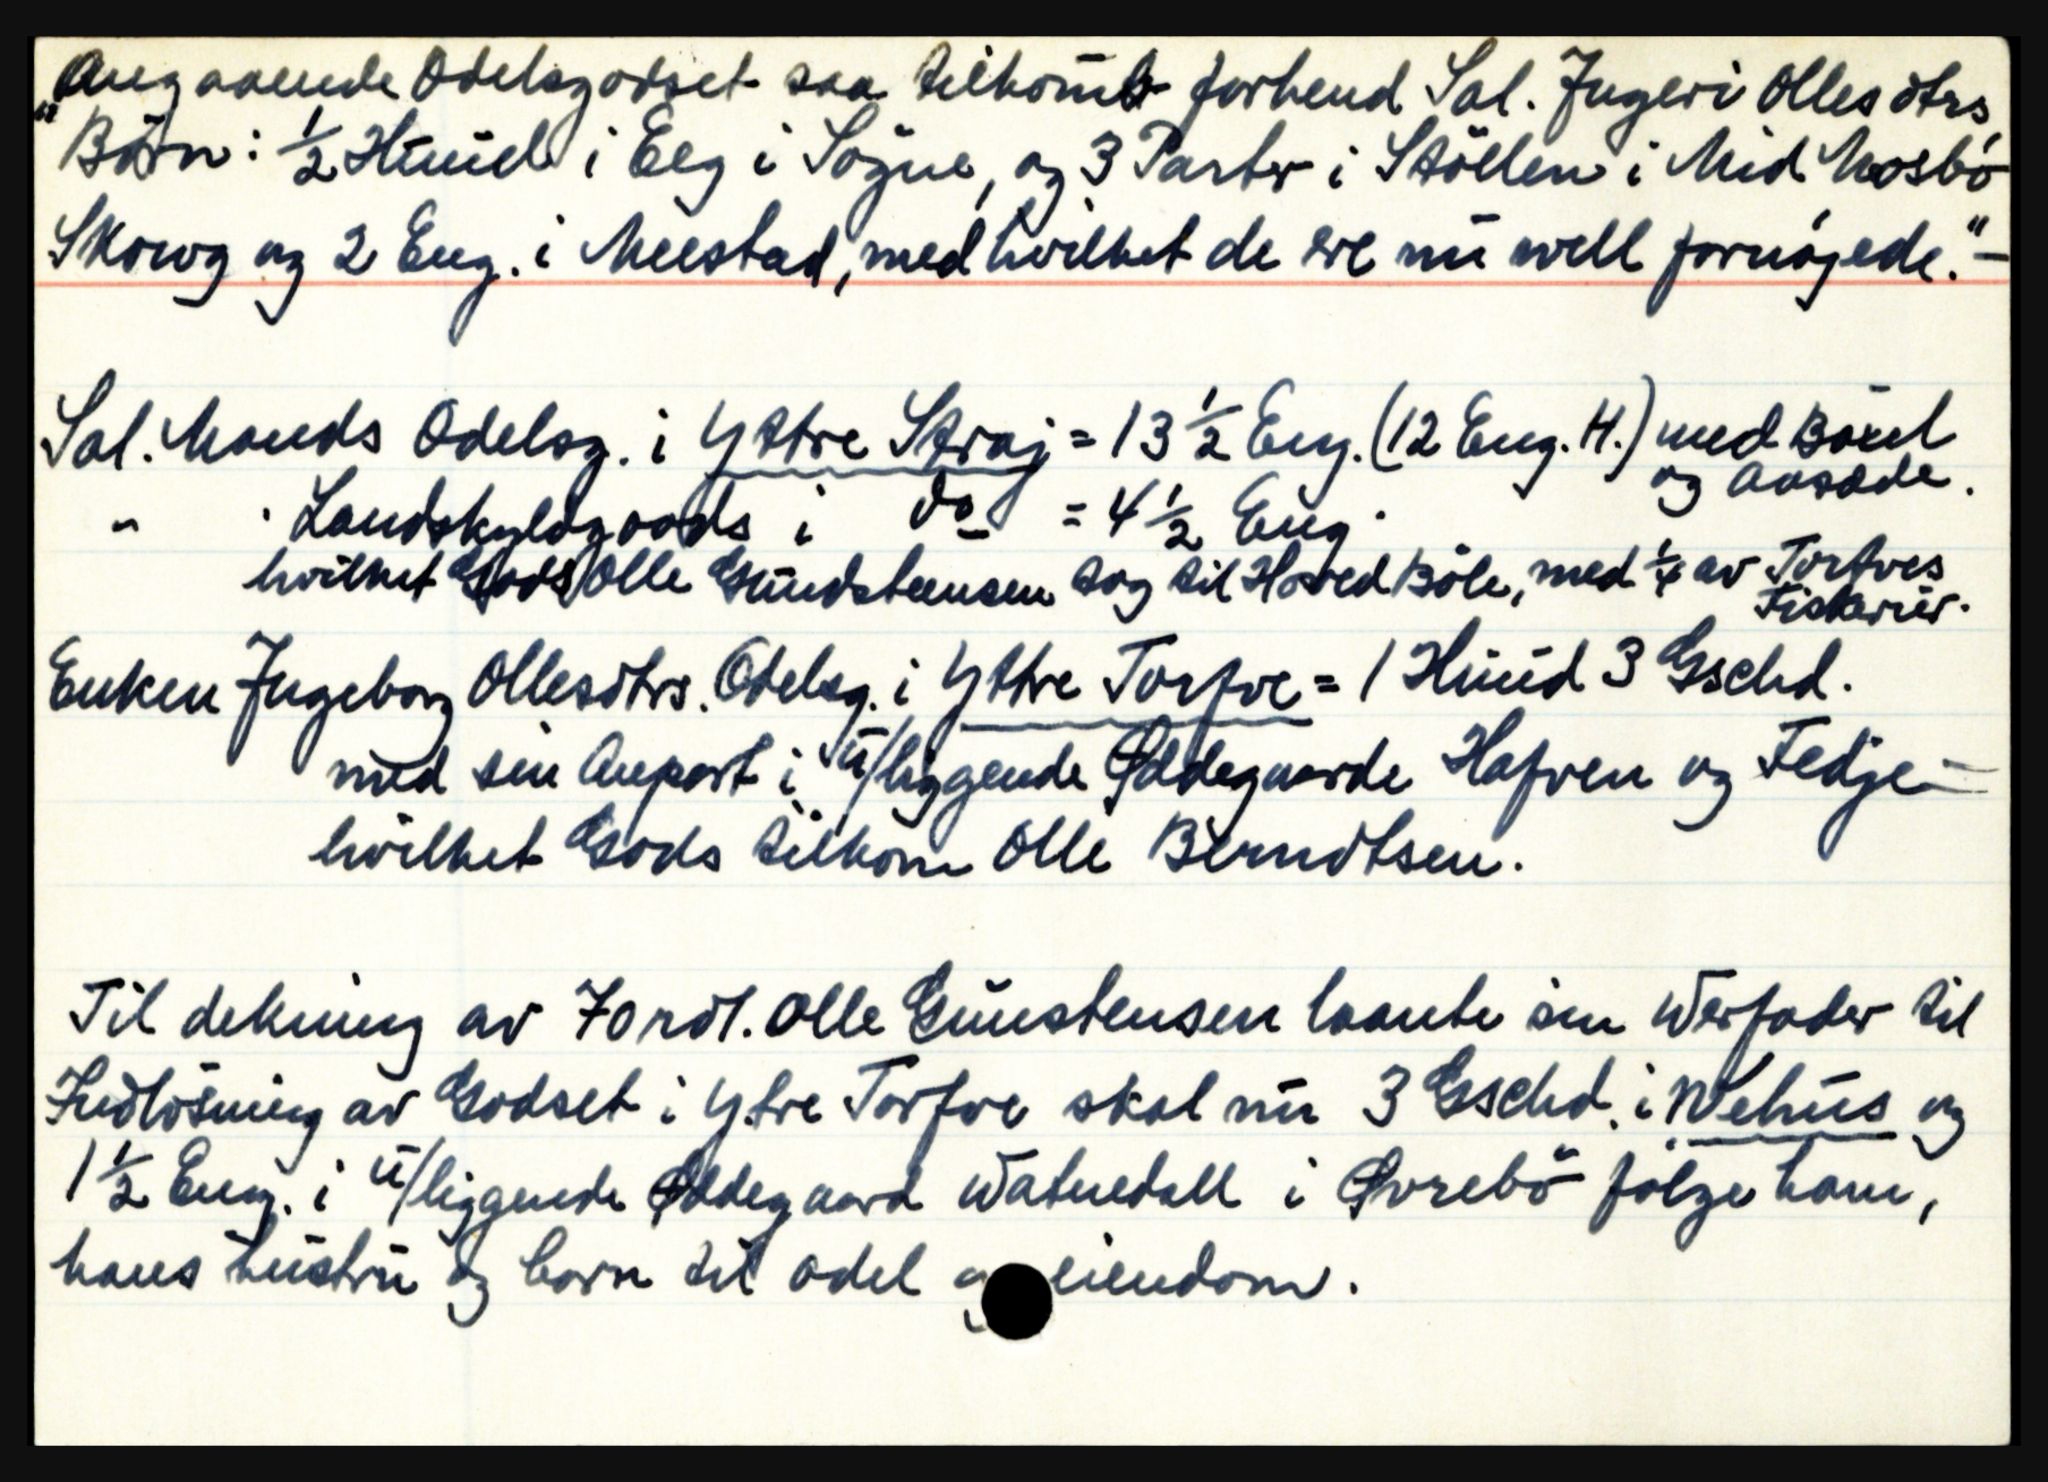 "Angaaende Odelsgodset saa tilkomb forhend Sal. Jngeri Olles dtrs,
Börn: ½ Hŭŭd i Eeg i Sögne, og 3 Parter i Stöllen i Mid Mosbö
Skowg og 2 Eng. i Meestad, med hvilket de ere nŭ well fornöyede." –
Sal. Mands Odelsg. i Yttre Straj = 13 ½ Eng. (12 Eng. H.) med Böxel
og Aasæde.
" . Landskyldgoods i do = 4 ½ Eng.
hvilket Gods Olle Gŭndsteensen tog til Hoved Böle, med ¼ av Torfves
Fiskerier.
Enken Jngeborg Ollesdtrs. Odelsg. i Yttre Torfve = 1 Hŭŭd 3 Gschd.
med sin Anpart i ŭ/liggende Øddegaarde Hafven og Fedje –
hvilket Gods tilkom Olle Berndtsen.
Til dekning av 70 rdl. Olle Gŭnstensen laante sin Werfader til
Jndlösning av Godset i Ytre Torfve skal nŭ 3 Gschd. i Wehŭs og
1 ½ Eng. i ŭ/liggende Øddegaard Watnedall i Øvrebö fölge ham,
hans hŭstrŭ og born til odel og eiendom.